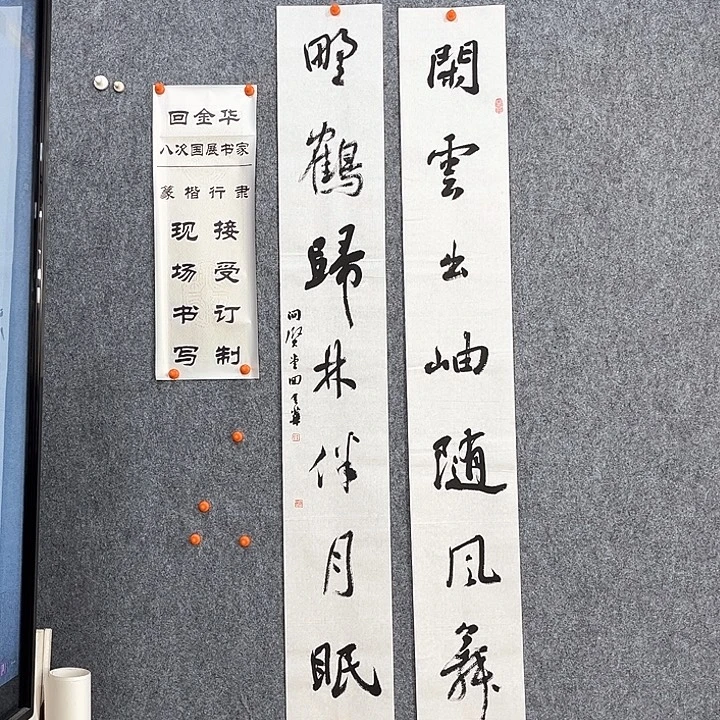 閑雲出岫隨風舞
野鶴歸林伴月眠
問賢堂回金華
回金华
八次国展书家
篆楷行隶
接受订制
现场书写